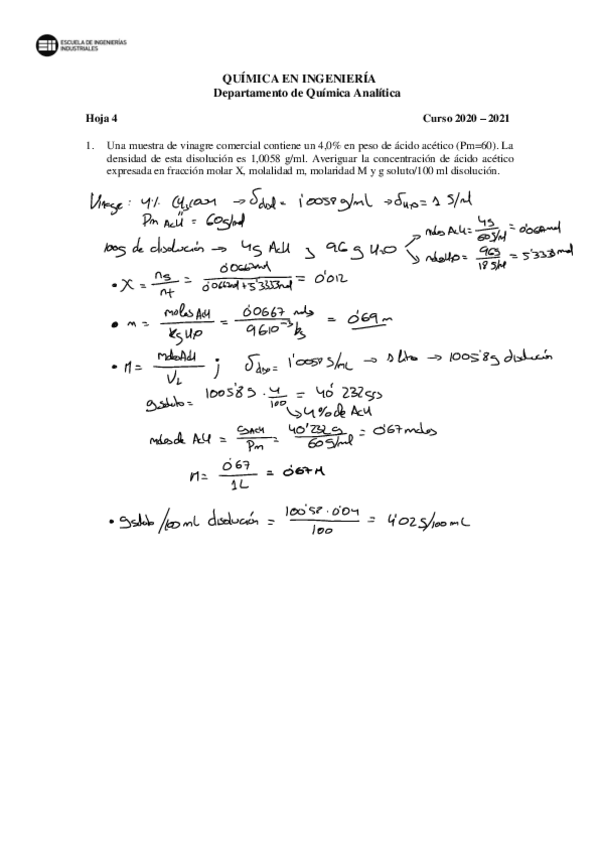 ESCUELA DE INGENIERÍAS
INDUSTRIALES
QUÍMICA EN INGENIERÍA
Departamento de Química Analítica
Hoja 4 Curso 2020 – 2021
1. Una muestra de vinagre comercial contiene un 4,0% en peso de ácido acético (Pm=60). La
densidad de esta disolución es 1,0058 g/ml. Averiguar la concentración de ácido acético
expresada en fracción molar X, molalidad m, molaridad M y g soluto/100 ml disolución.
4% → δ = 1'0058 g/ml → δH₂O = 1 g/ml
Pm AcH = 60 g/mol
100g de disolución → 4g AcH y 96 g H₂O
moles AcH = 4g / 60 g/mol =
moles H₂O = 96g / 18 g/ml = 5'333 mol
• X = ns / nt = = 0'012
• m = moles AcH / kg H₂O = 0'0667 mols / 96·10⁻³ kg = 0'69 m
• M = moles AcH / V_L ; δ = 1'0058 g/mL → 1 litro → 1005'8g disolución
g soluto = 1005'8 g · 4 / 100 = 40'232 grs
↳ 4% de AcH
moles de AcH = g AcH / Pm = 40'232 g / 60 g/mol = 0'67 moles
M = 0'67 / 1L = 0'67 M
• g soluto /100 mL disolución = 100'58 · 0'04 / 100 = 4'02 g/100 mL